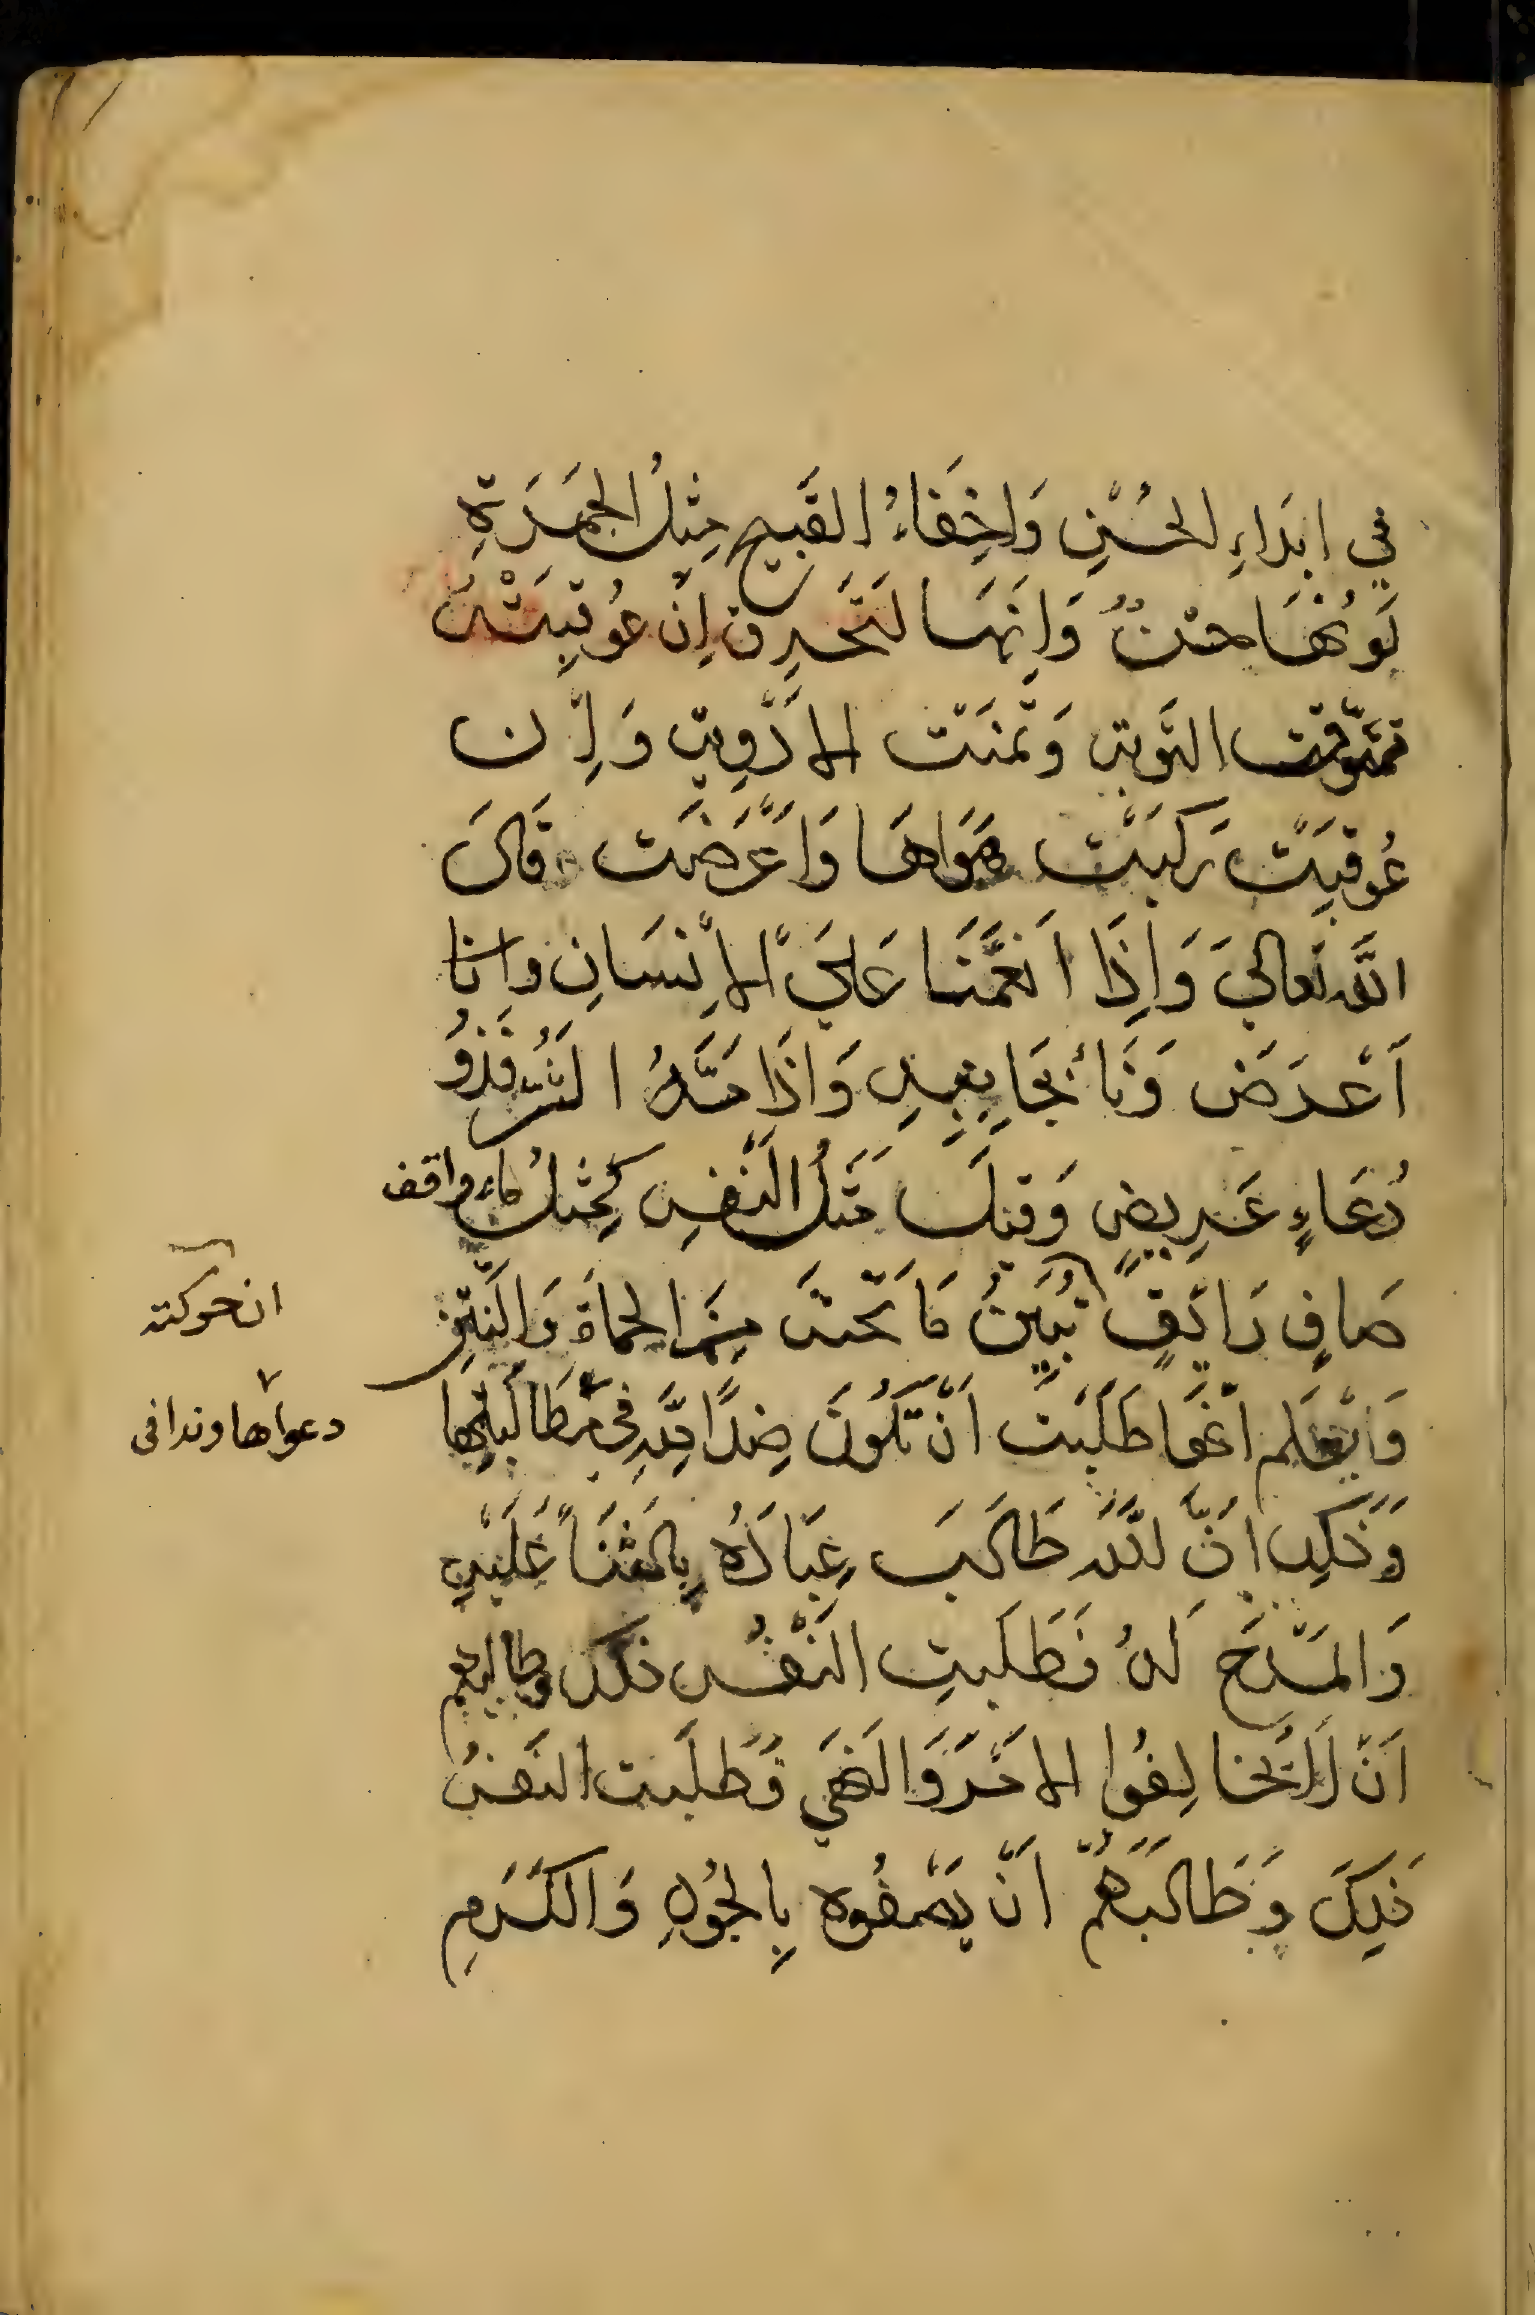 في ابداء الحسن واخفاء القبيح مثل الجمرة
لونها حسن وانها لتحرق إن عوقبت
سوفت التوبة وتمنت الاوبة وإن
عوقيت ركبت هواها واعرضت قال
الله تعالى وإذا انعمنا على الإنسان وانا
أعرض ونأى بجانبه واذا مسه الشر فذو
دعاء عريض وقيل مثل النفس كمثل ماء واقف
صاف رائق تبين ما تحته من الحماة والنتن
ان حركته
واعلم انها طلبت ان تكون ضدا لله في مطالبها
دعواها وندا في
وذلك ان الله طالب عباده بالثناء عليه
والمدح له فطلبت النفس ذلك وطالبهم
ان لا يخالفوا الامر والنهي فطلبت النفس
ذلك وطالبهم ان يصفوه بالجود والكرم